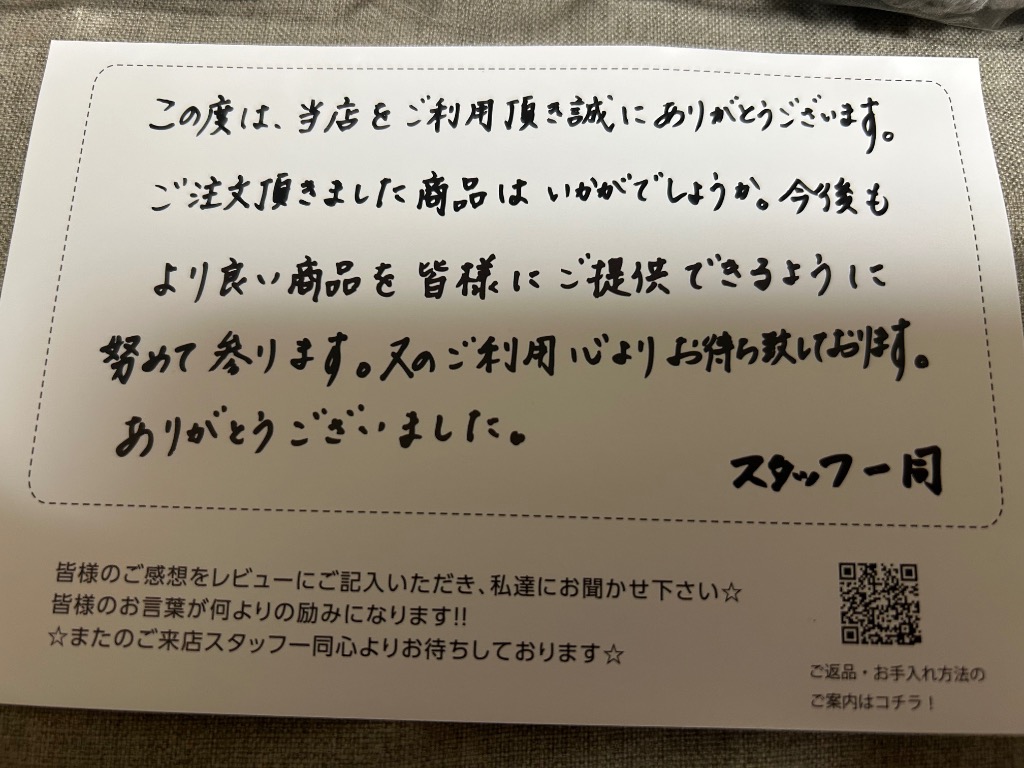 この度は、当店をご利用頂き誠にありがとうございます。
ご注文頂きました商品はいかがでしょうか。今後も
より良い商品を皆様にご提供できるように
努めて参ります。又のご利用心よりお待ち致しております。
ありがとうございました。
スタッフ一同
皆様のご感想をレビューにご記入いただき、私達にお聞かせ下さい☆
皆様のお言葉が何よりの励みになります!!
☆またのご来店スタッフ一同心よりお待ちしております☆
ご返品・お手入れ方法の
ご案内はコチラ！